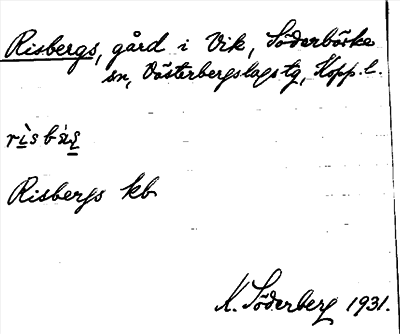 Risbergs, gård i Vik, Söderbärke
sn, Västerbergslags tg, Kopp. l.
Risbergs kb
K. Söderberg 1931.